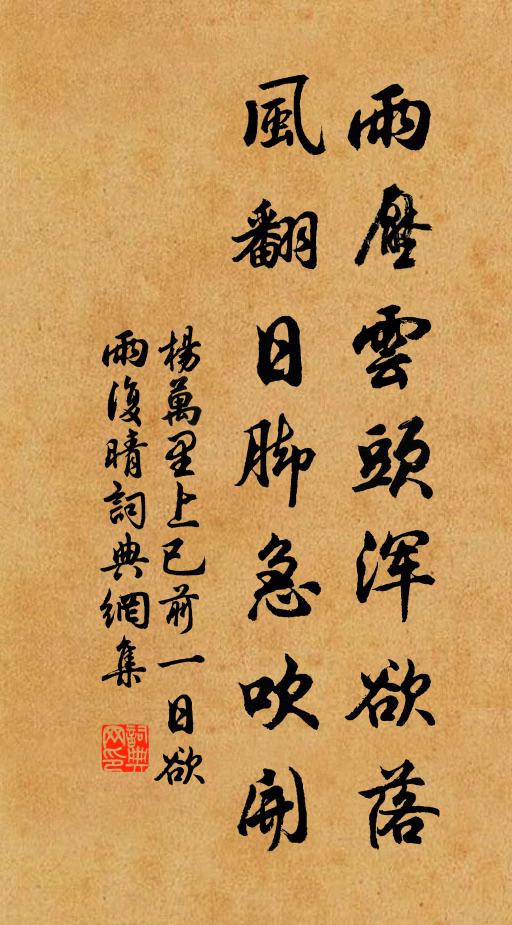 雨壓雲頭渾欲落
風翻日脚急吹開
楊萬里上巳前一日欲
雨復晴詞典網集
詞典
网印